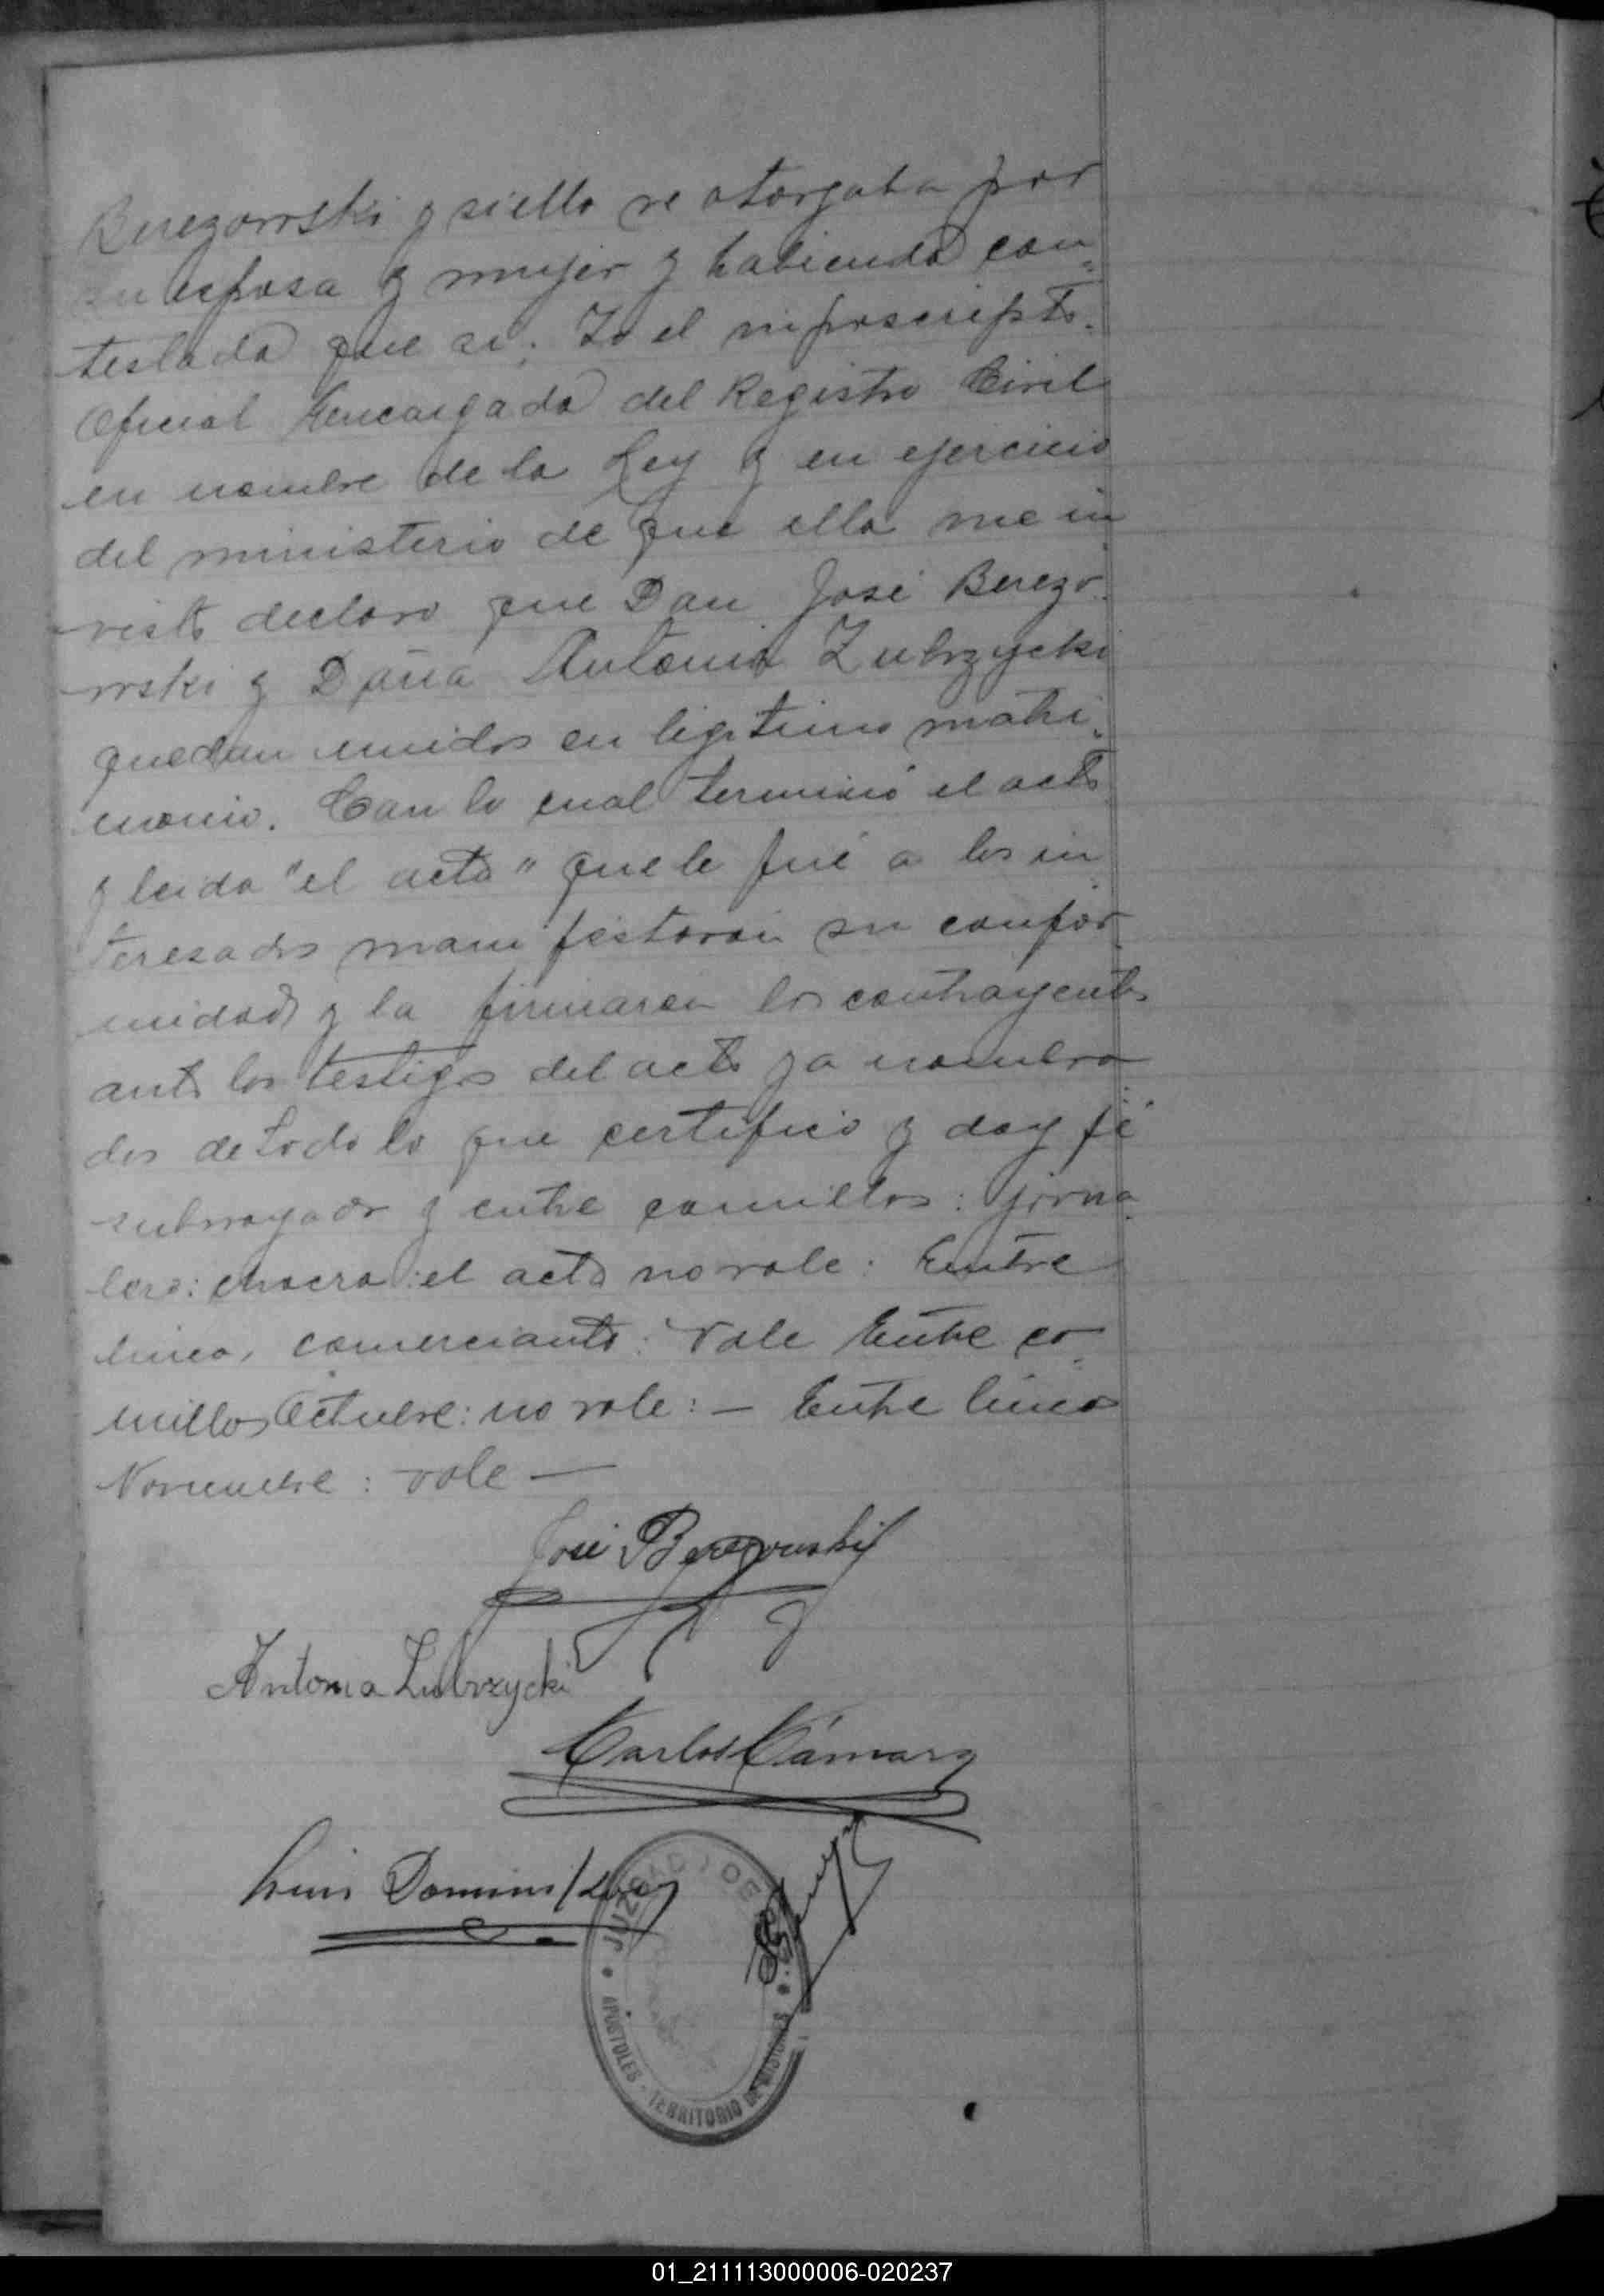 Berezowski y si ella se otorgaba por
su esposa y mujer y habiendo con=
testado que si; Yo el infrascripto
Oficial Encargado del Registro Civil
en nombre de la Ley y en ejercicio
del ministerio de que ella me in
viste declaro que Don José Berezo
wski y Doña Antonia Zubrzycki
quedan unidos en legitimo matri=
monio. Con lo cual terminó el acto
y leida "el acta" que le fué a los in
teresados manifestaron su confor
midad y la firmaron los contrayentes
ante los testigos del acto ya nombra
dos de todo lo que certifico y doy fé
subrrayado y entre comillas: jorna
lero: chacra: el acta no vale: Entre
linea, comerciante: Vale Entre co=
millas Octubre: no vale: — Entre linea
Noviembre: vale —
José Berezowski
Antonia Zubrzycki
Carlos Cámara
Luis
JUZGADO DE
APÓSTOLES - TERRITORIO DE MISIONES
01_211113000006-020237